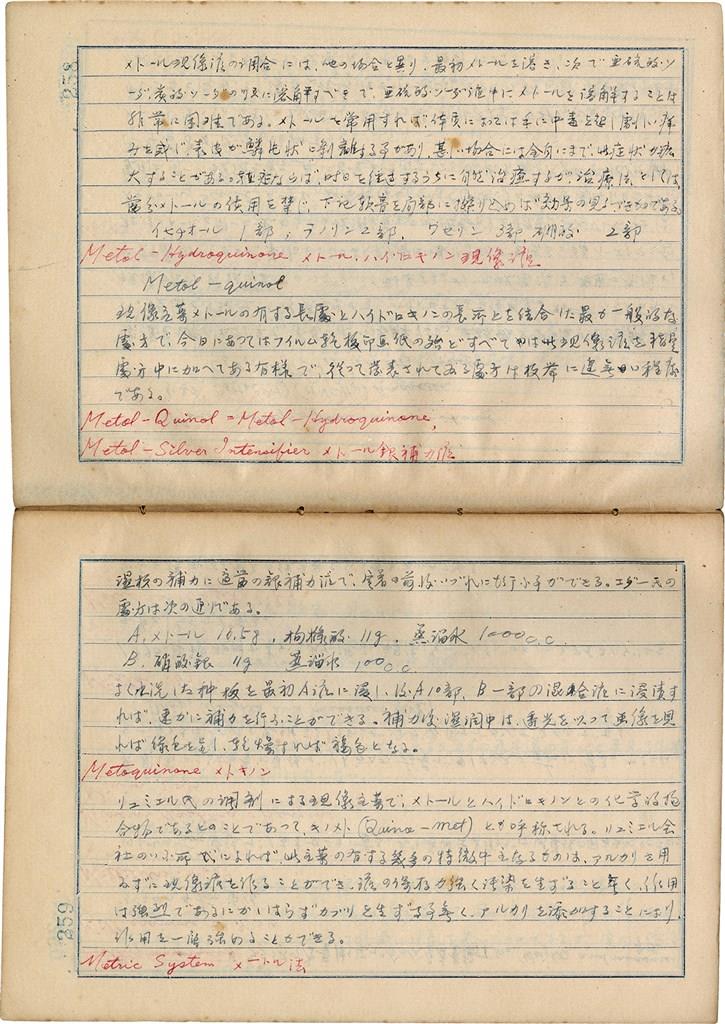 258
メトール現像液の調合には、他の場合と異り、最初メトールを溶き、次で亜硫酸ソ
ーダ、炭酸ソーダの順に溶解すべきで、亜硫酸ソーダ液中にメトールを溶解することは
非常に困難である。メトールを常用すれば、体質によっては手に中毒を起し劇しい痒
みを感じ、表皮が鱗片状に剥離する事があり、甚しい場合には全身にまで、此症状が拡
大することがある。軽症ならば、時日を経過するうちに自然治癒するが、治療法としては、
メトールの使用を禁じ、下記軟膏を局部に擦り込めば効果の見るべきものである。
イヒチオール 1部, ラノリン 2部, ワセリン 3部 硼酸 2部
Metol-Hydroquinone メトール、ハイドロキノン現像液
Metol-quinol
現像主薬メトールの有する長處とハイドロキノンの長所とを結合した最も一般的な
處方で、今日にあってはフィルム乾板印画紙の殆どすべては此現像液を指定
處方中に加へてある有様で、従って発表されてゐる處方は枚挙に遑無い程度
である。
Metol-Quinol = Metol-Hydroquinone,
Metol-Silver Intensifier メトール銀補力液
湿板の補力に適當の銀補力液で、定着の前後いづれにも行ふ事ができる。エダー氏の
處方は次の通りである。
A. メトール 16.5g, 枸櫞酸 11g, 蒸溜水 1000c.c.
B. 硝酸銀 11g 蒸溜水 100c.c.
よく水洗した種板を最初A液に浸し、後A10部、B一部の混合液に浸漬す
れば、速かに補力を行ふことができる。補力後湿潤中は、透光を以って画像を見
れば緑色を呈し、乾燥すれば褐色となる。
Metoquinone メトキノン
リュミエル氏の調剤による現像主薬で、メトールとハイドロキノンとの化学的抱
合物であるとのことであって、キノメト (Quino-met) とも呼称される。リュミエル会
社の 所 によれば、此主薬の有する幾多の特徴中主なるものは、アルカリを用
ゐずに現像液を作ることができ、液の保存力強く汚染を生ずること無く、作用
は強烈であるにかゝはらずカブリを生ずる事無く、アルカリを添加することにより
作用を一層強めることができる。
Metric System メートル法
259